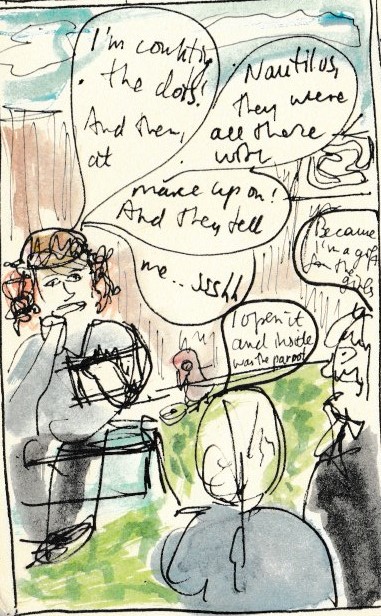 I'm counting
the dots!
And then,
at
Nautilus,
they were
all there
with
make up on!
And they tell
me.. ssshh
Because
I'm a gift
for the
girls
I open it
and inside
was the parrot